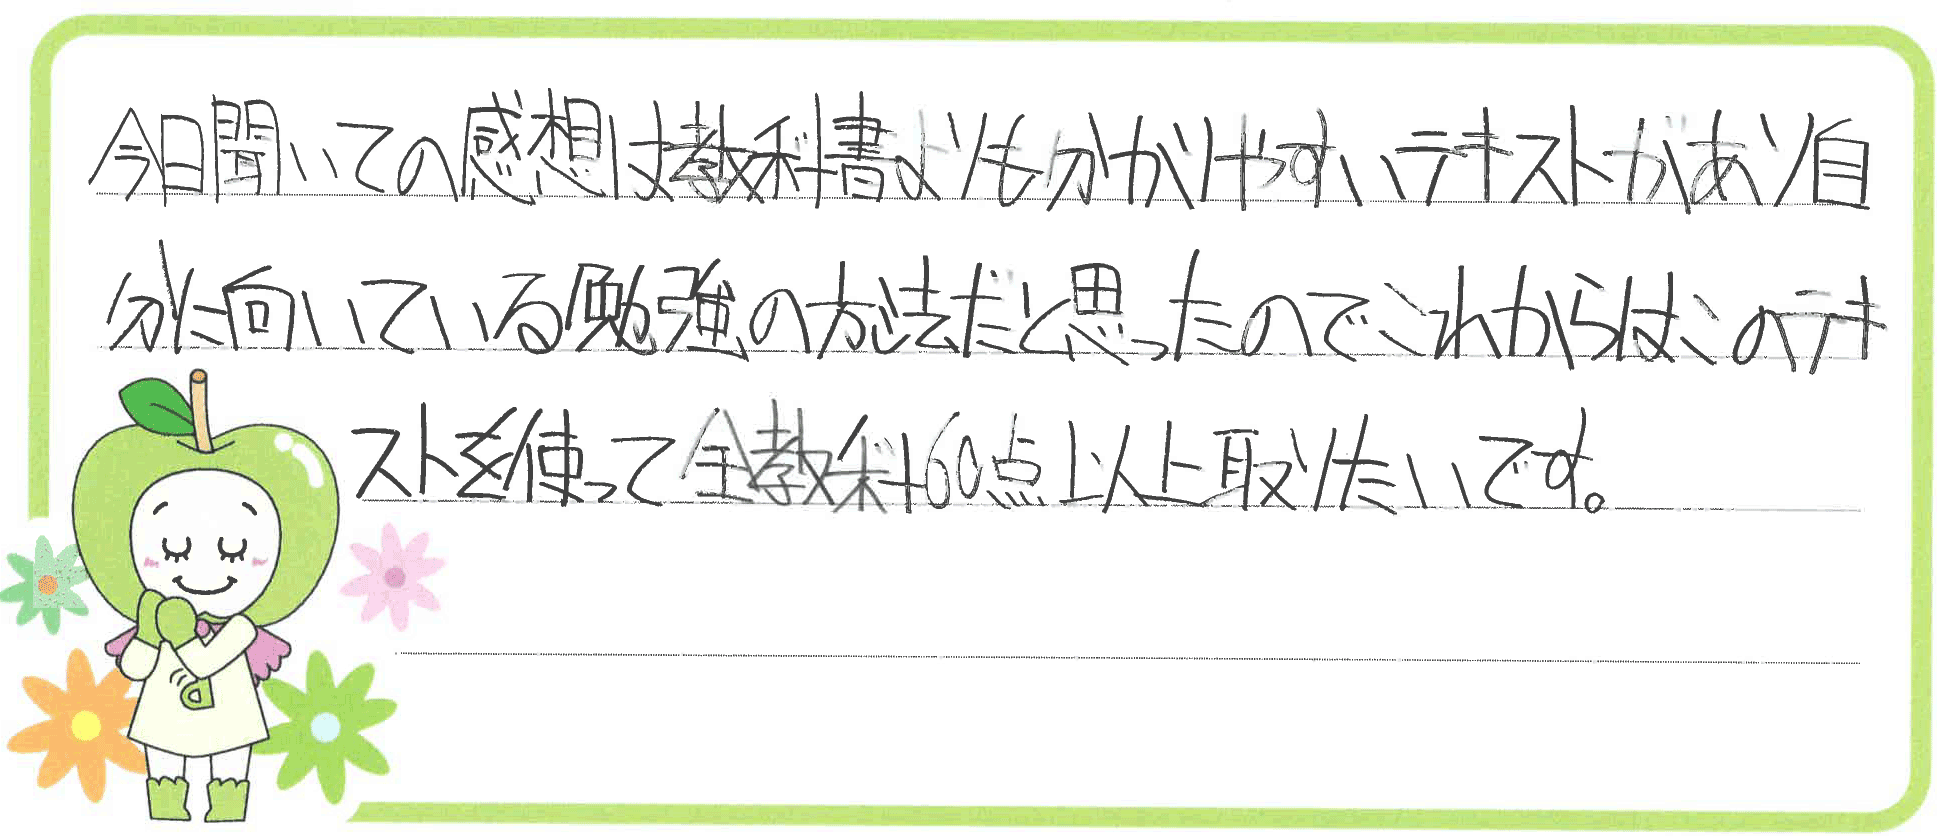 今日聞いての感想は教科書よりも分かりやすいテキストがあり自
分に向いている勉強の方法だと思ったのでこれからはこのテキ
ストを使って全教科60点以上取りたいです。